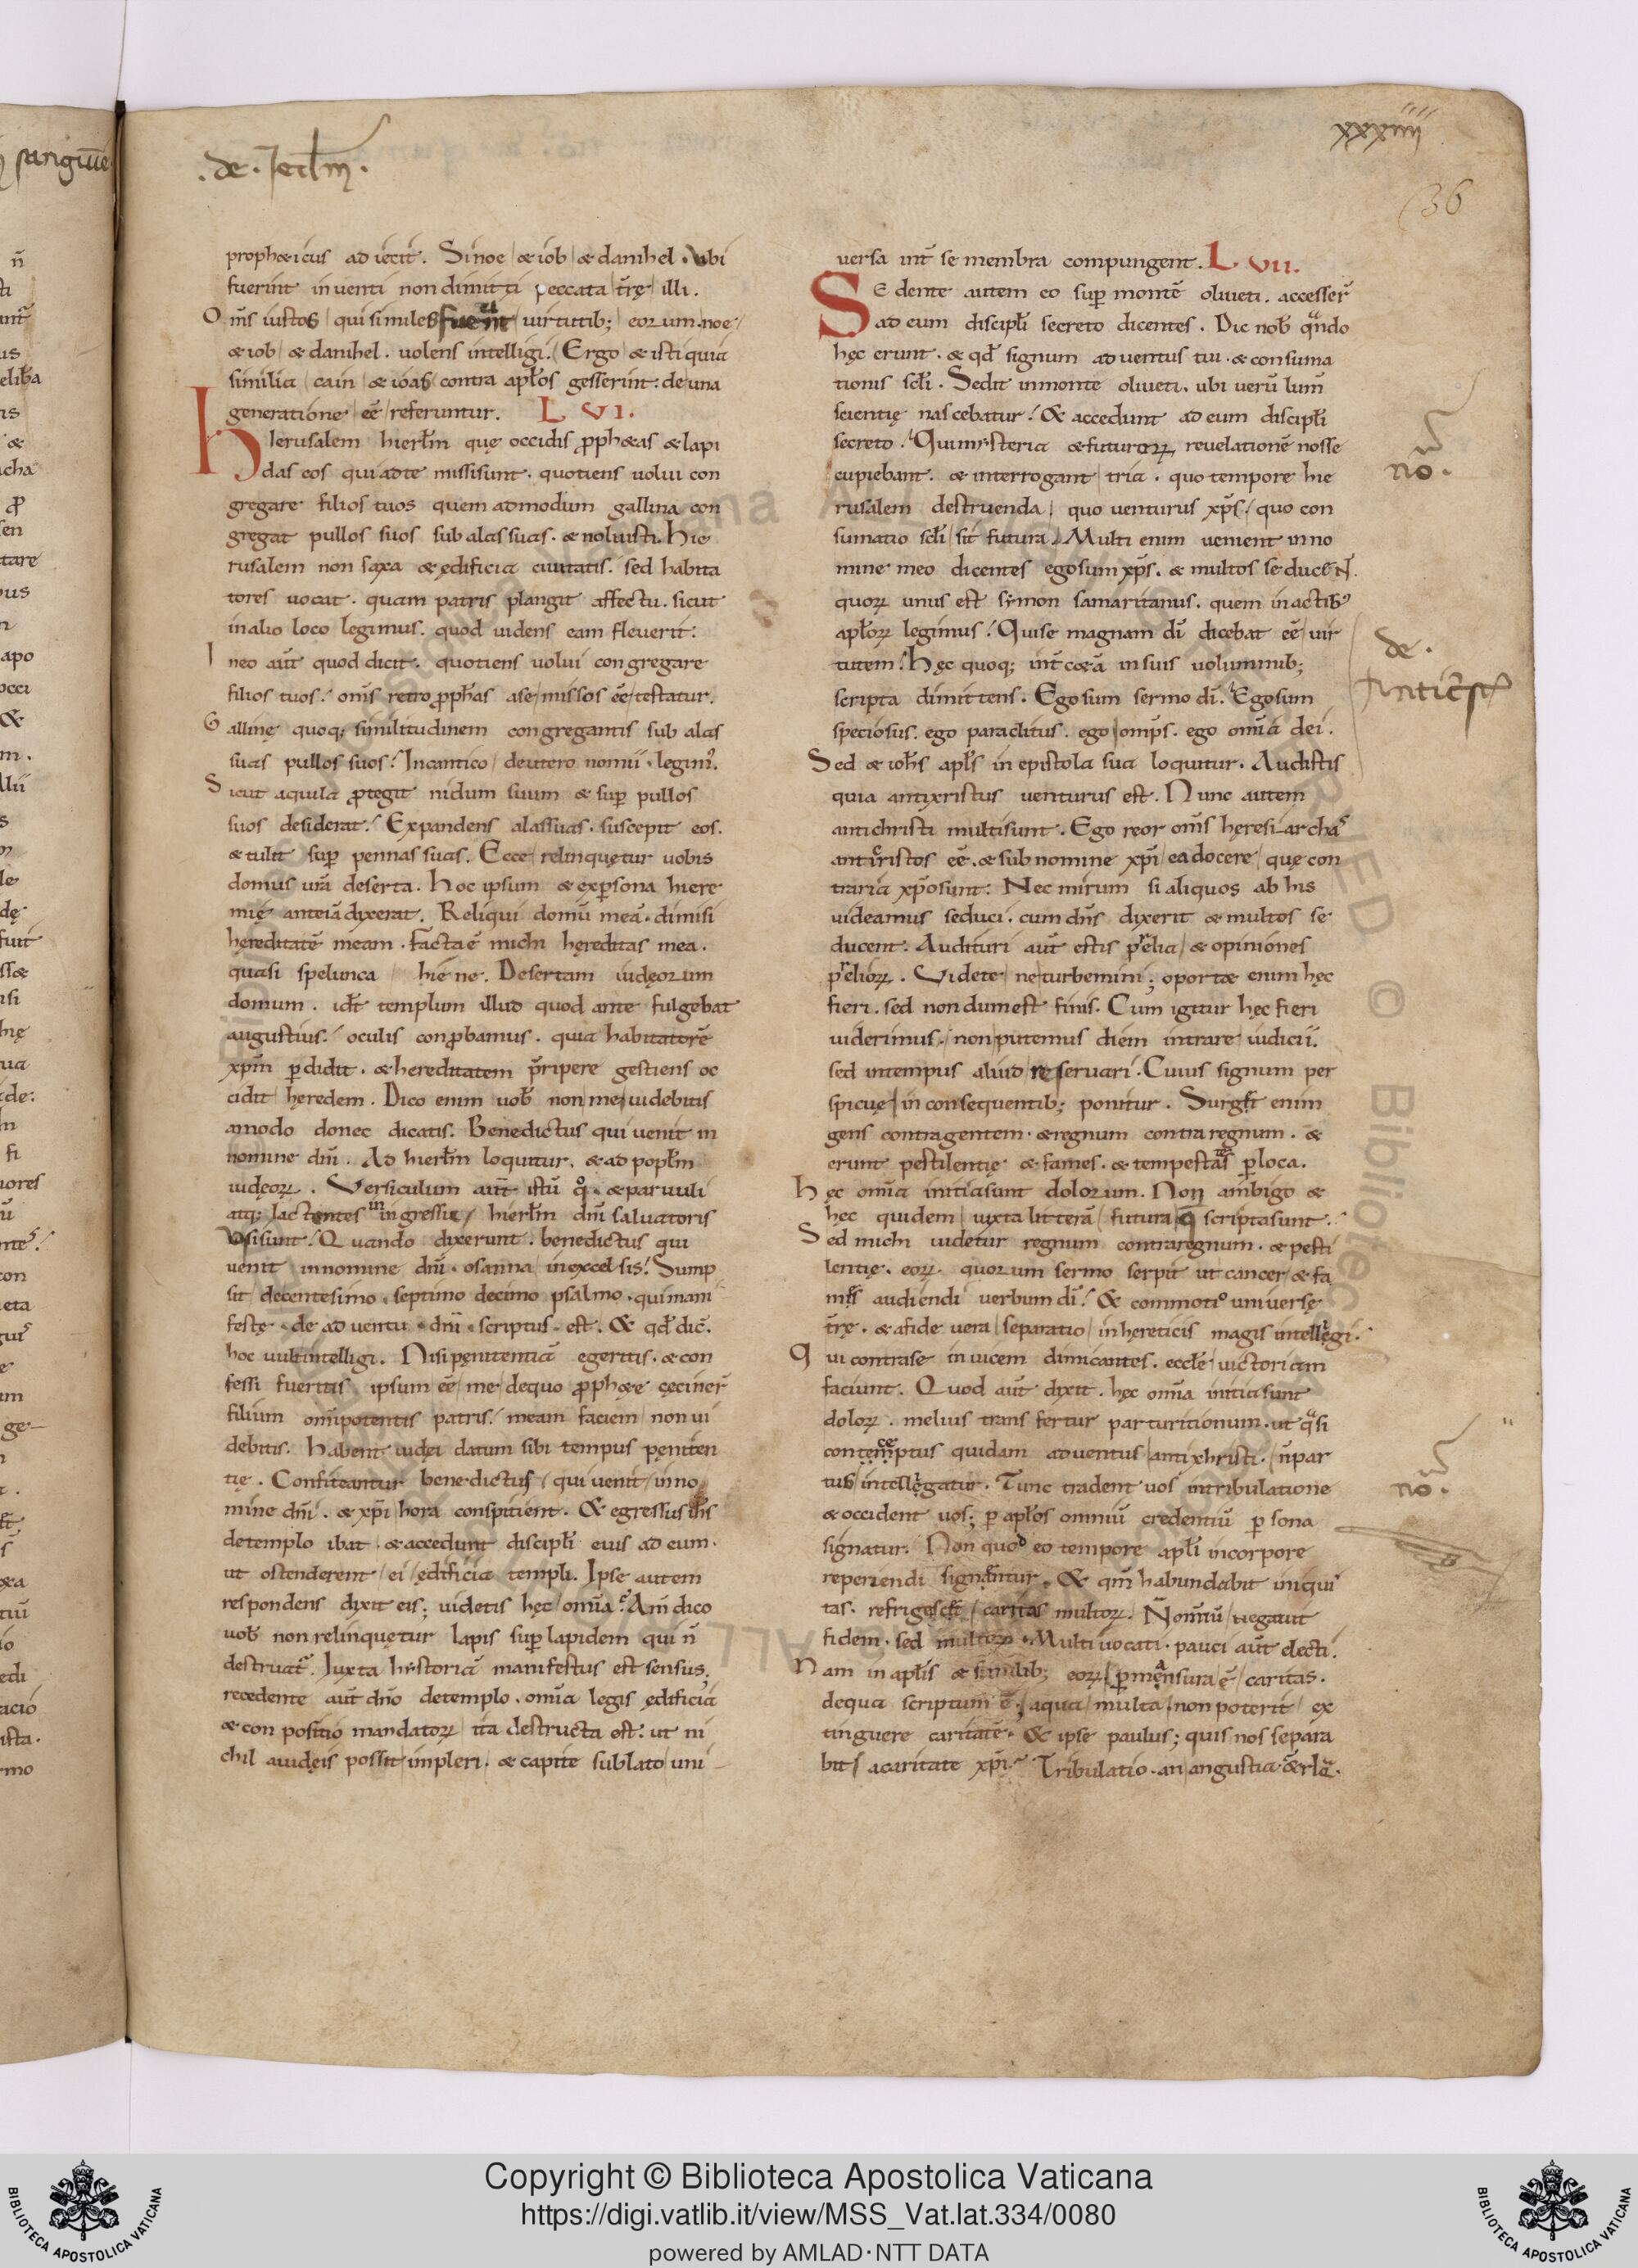 xxxiiii
36
.de.Jerl̄m.
prophæicus adiecit. Sinoe æiob ædanihel. ubi
fuerint inuenti nondimitti peccata t̄rę illi.
Om̄s iustos quisimiles fuerint uirtutib; eorum. noe
æiob ædanihel. uolens intelligi. Ergo æisti quia
similia cain æioas contra apl̄os gesserint: deuna
generatione eē referuntur. LVI.
HIerusalem hierl̄m quę occidis ꝓphæas ælapi
das eos quiadte missisunt. quotiens uolui con
gregare filios tuos quem admodum gallina con
gregat pullos suos subalas suas. ænoluisti. Hie
rusalem non saxa æędificia ciuitatis. sed habita
tores uocat. quam patris plangit affectu. sicut
inalio loco legimus. quod uidens eam fleuerit:
Ineo aūt quoddicit. quotiens uolui congregare
filios tuos. om̄s retro ꝓph̄as ase missos eē testatur.
Gallinę quoq; similitudinem congregantis sub alas
suas pullos suos. Incantico deuteronomii. legim᾽.
Sicut aquila ꝓtegit nidum suum æ suꝑ pullos
suos desiderat. Expandens alassuas. suscepit eos.
ætulit suꝑ pennas suas. Ecce relinquętur uobis
domus ur̄a deserta. Hoc ipsum æexꝑsona hiere
mię anteiā dixerat. Reliqui domū meā. dimisi
hęreditatē meam. Facta ē michi hęreditas mea.
quasi spelunca hiene. Desertam iudęorum
domum. idē templum illud quod ante fulgebat
augustius. oculis conꝓbamus. quia habitatorē
xp̄m ꝑdidit. æhereditatem p̄ripere gestiens oc
cidit hęredem. Dico enim uob̄ non me uidebitis
amodo donec dicatis. Benedictus qui uenit in
nomine dn̄i. Ad hierl̄m loquitur. æad popl̄m
iudęoꝝ. Versiculum aūt istū qͦ. æparuuli
atq; lactentes iningressu hierl̄m dn̄i saluatoris
usisunt. Quando dixerunt. benedictus qui
uenit innomine dn̄i. osanna inexcelsis. Sump
sit decentesimo. septimo decimo psalmo. quimani
festę. de aduentu. dn̄i. scriptus. est. & qd̄ dic̄.
hoc uultintelligi. Nisipęnitentiā egeritis. æcon
fessi fueritis ipsum eē me dequo ꝓphæę cęciner̄
filium omīpotentis patris. meam faciem non ui
debitis. Habent iudęi datum sibi tempus pęniten
tię. Confiteantur benedictus qui uenit inno
mine dn̄i. æ xp̄i hora conspitient. & egressus ih̄s
detemplo ibat. æaccedunt discipl̄i eius ad eum.
ut ostenderent ei ędificia templi. Ipse autem
respondens dixit eis; uidetis hęc omīa? Am̄ dico
uob̄ nonrelinquętur lapis suꝑ lapidem qui n̄
destruat̄. Iuxta hystoriā manifestus est sensus.
recedente aūt dn̄o detemplo. omīa legis ędificia
æconpositio mandatoꝝ ita destructa est. ut ni
chil aiudęis possit impleri. æ capite sublato uni
uersa int̄ se membra compungent. LVII.
Sedente autem eo suꝑ montē oliueti. accesser̄
ad eum discipl̄i secreto dicentes. Dic nob̄ qando
hęc erunt. æ qd̄ signum aduentus tui. æconsuma
tionis scl̄i. Sedit inmonte oliueti. ubi uerū lum̄
scientię nascebatur. & accedunt ad eum discipl̄i
secreto. Quimysteria æfuturoꝝ reuelationē nosse
cupiebant. æinterrogant tria. quo tempore hie
rusalem destruenda quo uenturus xp̄s. quo con
sumatio scl̄i sit futura. Multi enim uenient inno
mine meo dicentes egosum xp̄s. æ multos seducent.
quoꝝ unus est symon samaritanus. quem inactib᾽
apl̄oꝝ legimus. Quise magnam dī dicebat eē uir
tutem. Hęc quoq; int̄ cæā insuis uoluminib;
scripta dimittens. Egosum sermo dī. Egosum
speciosus. ego paraclitus. ego omp̄s. ego omīa dei.
Sed æ ioh̄s apl̄s in epistola sua loquitur. Audistis
quia antixristus uenturus est. Nunc autem
antichristi multisunt. Ego reor om̄s hęresiarchas
antixristos eē. æsub nomine xp̄i ea docere quę con
traria xp̄osunt: Nec mirum si aliquos ab his
uideamus seduci. cum dn̄s dixerit æ multos se
ducent. Audituri aūt estis prelia æ opiniones
prelioꝝ. Videte neturbemini; oportæ enim hęc
fieri. sed nondumest finis. Cum igitur hęc fieri
uiderimus. nonputemus diem intrare iudicii.
sed intempus aliud reseruari. Cuius signum per
spicuę inconsequentib; ponitur. Surget enim
gens contragentem. æregnum contraregnum. æ
erunt pestilentię æfames. ætempestates ꝑloca.
Hęc omīa initiasunt dolorum. Non ambigo æ
hęc quidem iuxta litterā futura quę scriptasunt.
Sed michi uidetur regnum contraregnum. æpesti
lentię. eoꝝ quorum sermo serpit ut cancer æfa
mes audiendi uerbum dī. & commotio uniuersę
t̄rę. æafide uera separatio inhęreticis magis intellegi.
Qui contrase inuicem dimicantes. eccl̄ę uictoriam
faciunt. Quod aūt dixit. hęc omīa initiasunt
doloꝝ. melius transfertur parturitionum. ut qasi
conceptus quidam aduentus antixhristi. n̄par
tus intellegatur. Tunc tradent uos intribulatione
æoccident uos; ꝑ apl̄os omniū credentiū ꝑsona
signatur. Non quod eo tempore apl̄i incorpore
reperiendi signantur. & qm̄ habundabit iniqui
tas. refrigescet caritas multoꝝ. N̄omīū negauit
fidem. sed multoꝝ. Multi uocati. pauci aūt electi.
Nam in apl̄is æ similib; eoꝝ ꝑmansura ē caritas.
dequa scriptum ē. aqua multa nonpoterit ex
tinguere caritatē. & ipse paulus; quis nos separa
bit acaritate xp̄i. Tribulatio. an angustia ærl̄a.
no.
de.
Antichr̄
no.
sanguinē
Copyright © Biblioteca Apostolica Vaticana
https://digi.vatlib.it/view/MSS_Vat.lat.334/0080
powered by AMLAD·NTT DATA
BIBLIOTECA APOSTOLICA VATICANA
BIBLIOTECA APOSTOLICA VATICANA